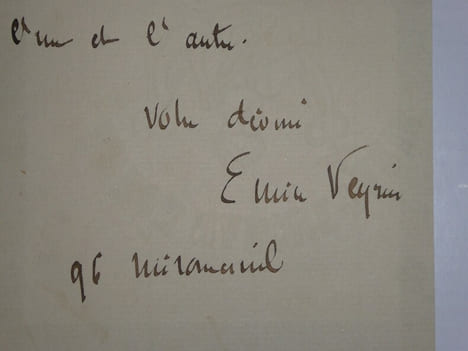 l'un et l'autre.
Votre dévoué
Emile Veyrin
96 Miromesnil